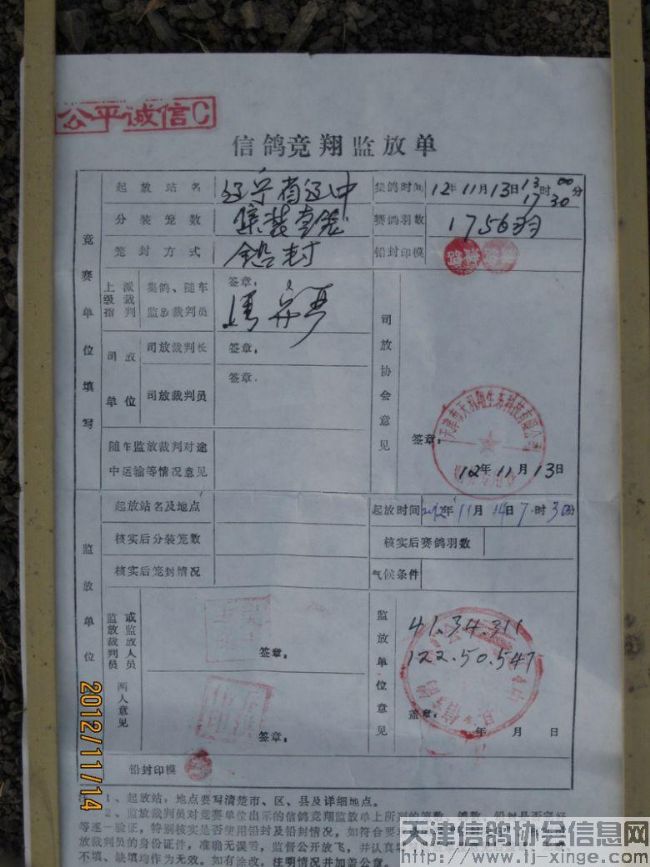 公平诚信C
信鸽竞翔监放单
竞赛单位填写
起放站名 辽宁省辽中 集鸽时间 12年11月13日13时00分
17 30
分装笼数 集装套笼 赛鸽羽数 1756羽
笼封方式 铅封 铅封印模
上级指派裁判 集鸽、随车监放裁判员 签章:
司放单位 司放裁判长 签章:
司放裁判员 签章:
司放协会意见
签章:
12年11月13日
随车监放裁判对途中运输等情况意见
监放单位
起放站名及地点 起放时间 2012年11月14日7时30分
核实后分装笼数 核实后赛鸽羽数
核实后笼封情况 气候条件
监放裁判员或监放人员两人意见
签章:
签章:
监放单位意见
41.34.311
122.50.547
盖章:
年 月 日
铅封印模
1、起放站,地点要写清楚市、区、县及详细地点。
2、监放裁判员对竞赛单位出示的信鸽竞翔监放单上所
等逐一验证,特别核实是否使用铅封及铅封情况,如符合要
放裁判员的身份证件,准确无误等,监督公开放飞,并认真
不填、缺填均作为无效,如有涂改,注明情况并加盖公章。
2012/11/14
天津信鸽协会信息网
http://www.tj.xinge.com